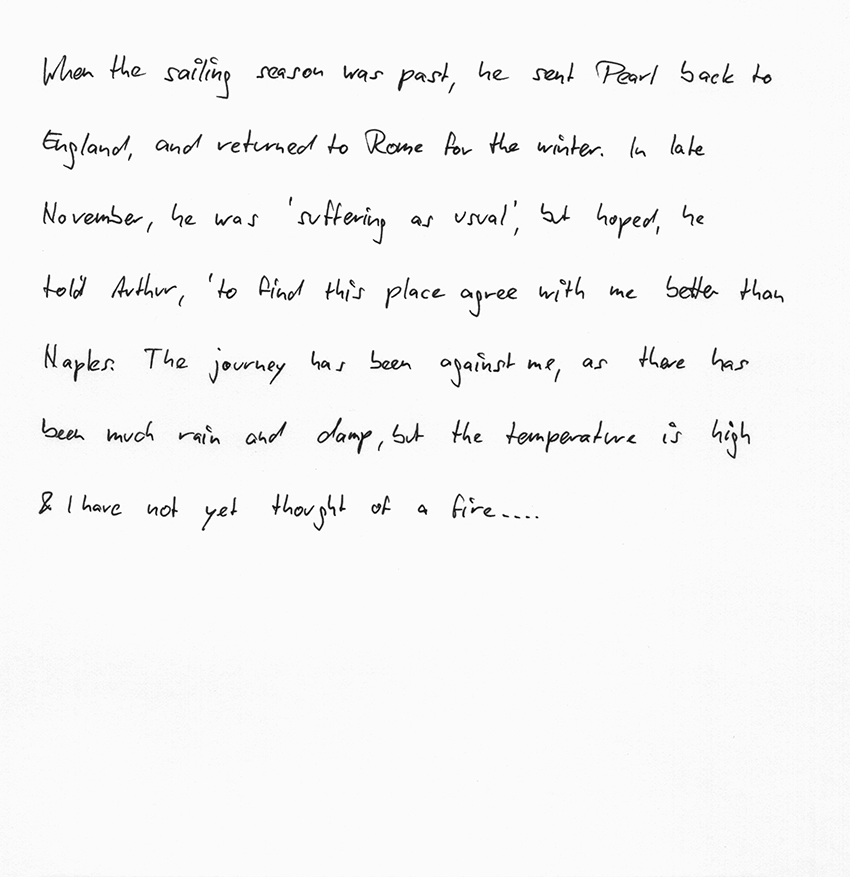 When the sailing season was past, he sent Pearl back to
England, and returned to Rome for the winter. In late
November, he was 'suffering as usual', but hoped, he
told Arthur, 'to find this place agree with me better than
Naples. The journey has been against me, as there has
been much rain and damp, but the temperature is high
& I have not yet thought of a fire....